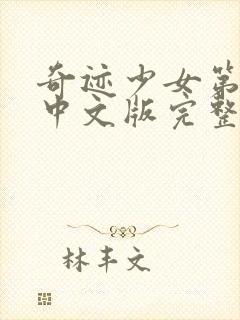 奇迹少女第
中文版完整
林丰文